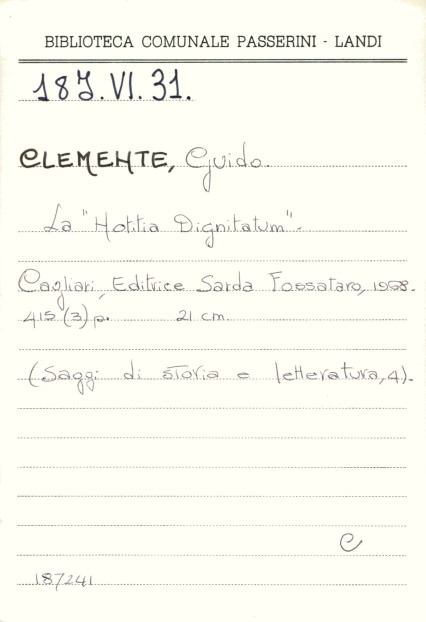 BIBLIOTECA COMUNALE PASSERINI - LANDI
18J.VI.31.
CLEMENTE, Guido.
La "Notitia Dignitatum".
Cagliari, Editrice Sarda Fossataro, 1968.
415 (3) p. 21 cm.
(Saggi di storia e letteratura, 4).
C
187241